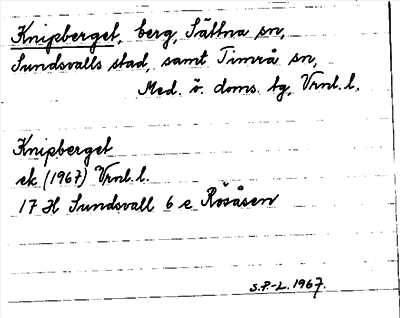 Knipberget, berg, Sättna sn,
Sundsvalls stad, samt Timrå sn,
Med. ö. doms. tg, Vrnl. l.
Knipberget
ek (1967) Vrnl. l.
17 H Sundsvall 6 e Rösåsen
S.P.-L. 1967.